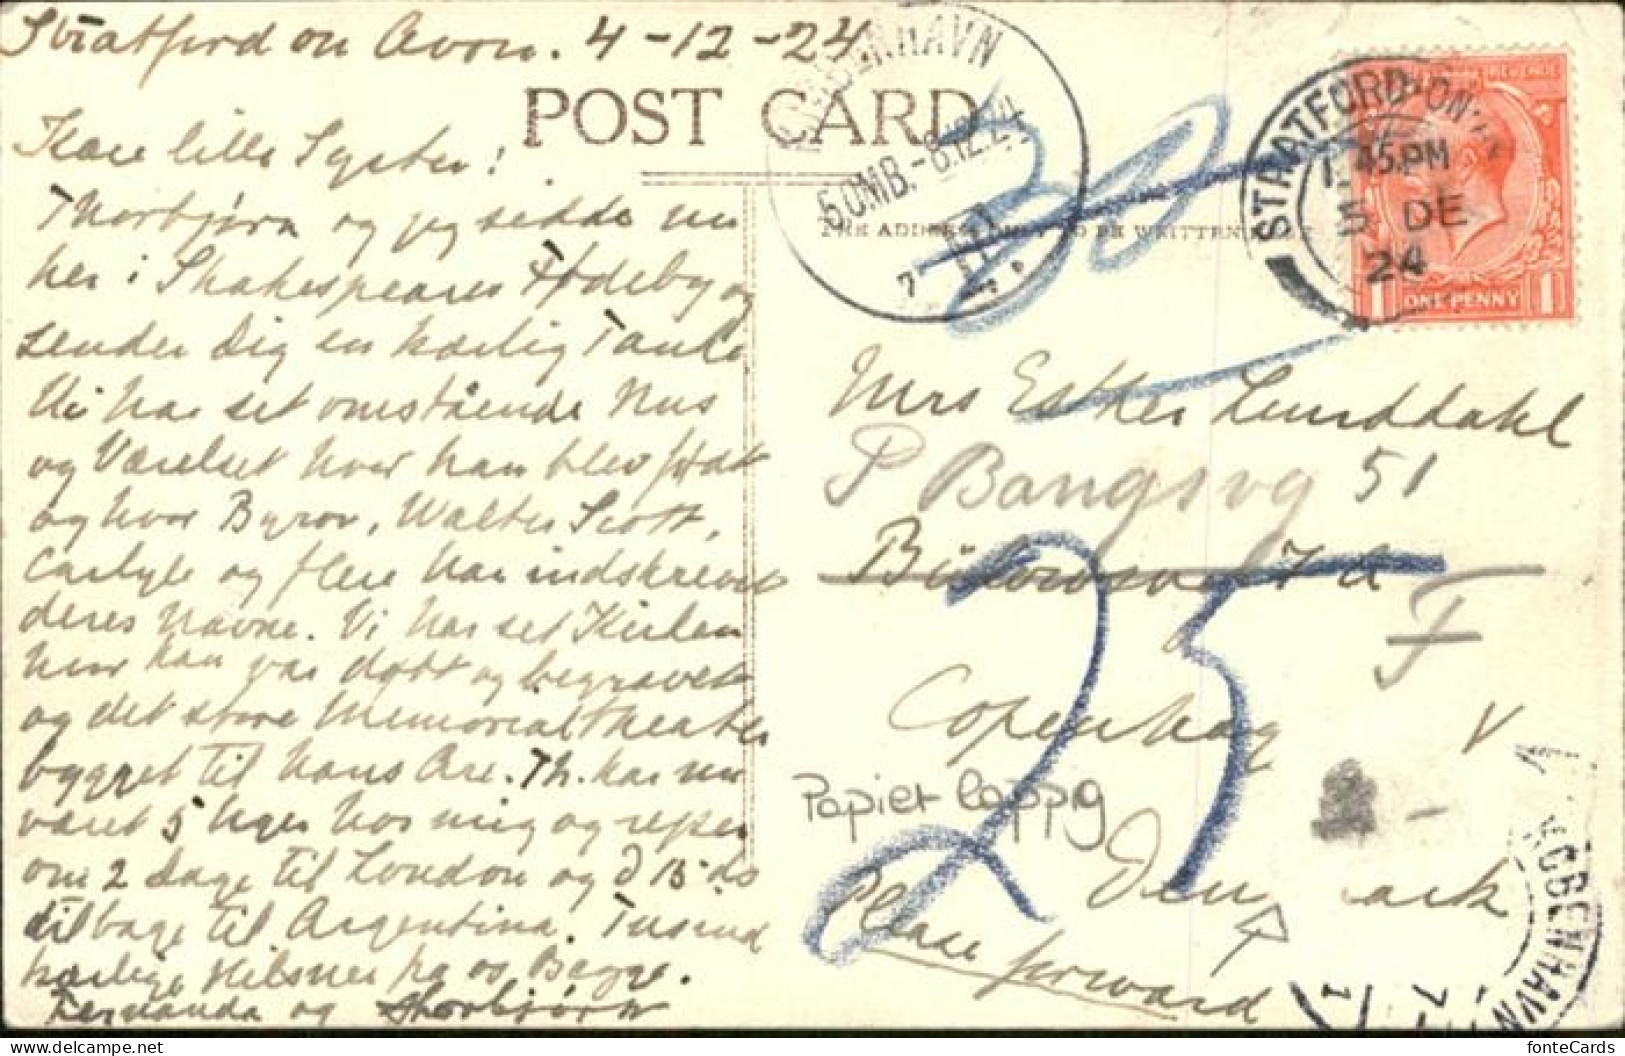 Stratford on Avon. 4-12-24
POST CARD
Kære lille Syster!
Thorbjørn og jeg sidde nu
her i Shakespeares Fødeby og
sender Dig en kærlig Tanke
Vi har set omstående Hus
og Værelset hvor han blev født
og hvor Byron, Walter Scott,
Carlyle og flere har indskrevet
deres Navne. Vi har set Kirken
hvor han var døbt og begravet
og det store Memorialtheater
bygget til hans Ære. Th. har nu
været 5 Uger hos mig og rejser
om 2 Dage til London og d 15 ds
tilbage til Argentina. Tusind
kærlige Hilsner fra os Begge.
Fernanda og Thorbjørn
KØBENHAVN
5.OMB.-8.12.24
THE ADDRESS ONLY TO BE WRITTEN HERE
30
STRATFORD-ON-AVON
1.45.PM
5 DE
24
REVENUE
1 ONE PENNY 1
Mrs Esther Lunddahl
P Bangsvg 51
Bülowsvej 7A
F
25
Copenhag V
Papier lappig
Den ark
Please forward
KØBENHAVN